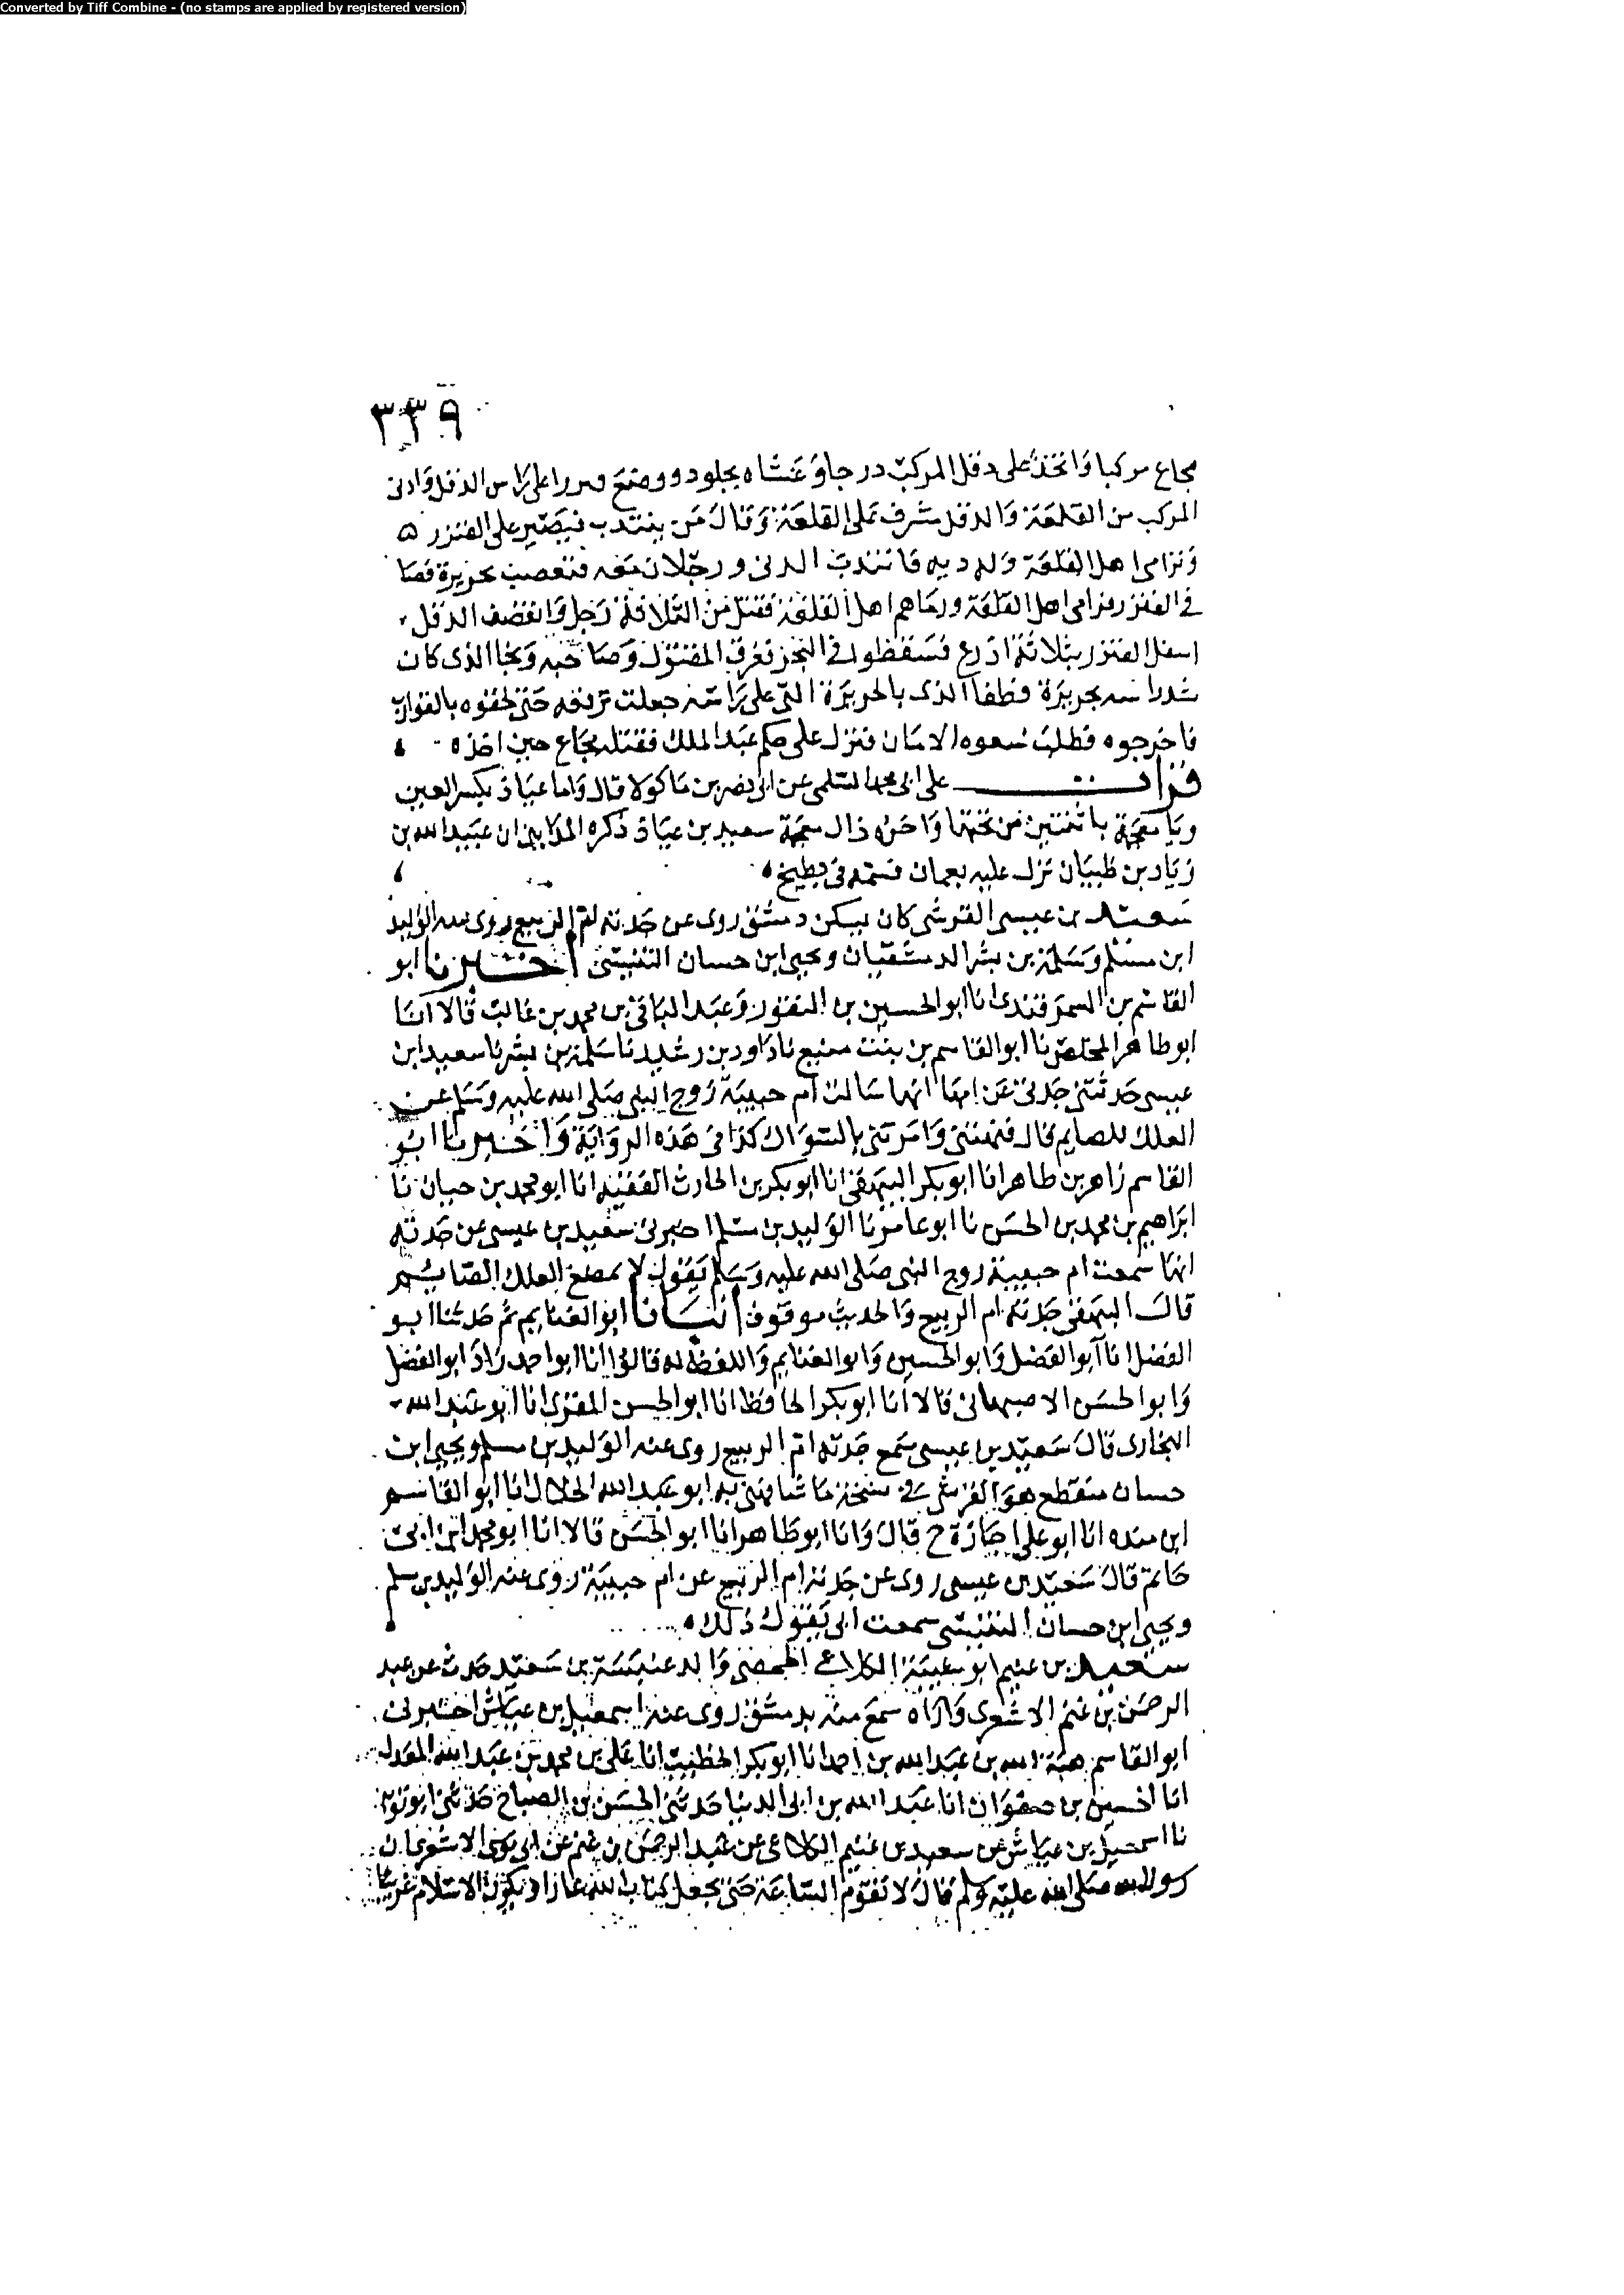 Converted by Tiff Combine - (no stamps are applied by registered version)
٣٣٩
مجاع مركبا واتخذ على دقل المركب درجا وغشاه بجلود ووضع على راس الدقل وادنى
المركب من القلعة والدقل مشرف على القلعة وقال من ينتدب فيصير على
وترامى اهل القلعة فانتدب ورجلان معه فتعصب بحريرة
في وترامى اهل القلعة ورماهم اهل القلعة فقتل من الثلاثة رجل وانقصف الدقل
اسفل بثلاثة اذرع فسقطوا في البحر فغرق المقتول وصاحبه ونجا الذى كان
شد راسه بحريرة وطفا الذى بالحريرة التي على راسه جعلت ترفعه حتى لحقوه بالقوارب
فاخرجوه فطلب الامان فنزل على حكم عبد الملك فقتله مجاع حين اخذه
قرات على ابى محمد السلمى عن ابى نصر بن ماكولا قال واما عياذ بكسر العين
ويا معجمة باثنتين من تحتها واخره ذال معجمة سعيد بن عياذ ذكره المدايني ان عبيد الله بن
زياد بن ظبيان نزل عليه بعمان فسمه في بطيخ
سعيد بن عيسى القرشى كان يسكن دمشق روى عن جدته ام الربيع روى عنه الوليد
ابن مسلم وسلمة بن بشر الدمشقيان ويحيى ابن حسان التنيسى اخبرنا ابو
القاسم بن السمرقندى انا ابو الحسين بن النقور وعبد الباقي بن محمد بن غالب قالا انا
ابو طاهر المخلص نا ابو القاسم بن بنت منيع نا داود بن رشيد نا سلمة بن بشر نا سعيد ابن
عيسى حدثتنى جدتى عن امها انها سالت ام حبيبة زوج النبي صلى الله عليه وسلم عن
العلك للصايم قال فنهتنى وامرتنى بالسواك كذا في هذه الرواية واخبرنا ابو
القاسم زاهر بن طاهر انا ابو بكر البيهقى انا ابو بكر بن الحارث الفقيه انا ابو محمد بن حيان نا
ابراهيم بن محمد بن الحسن نا ابو عامر نا الوليد بن مسلم اخبرنى سعيد بن عيسى عن جدته
انها سمعت ام حبيبة زوج النبي صلى الله عليه وسلم تقول لا يمضغ العلك الصايم
قال البيهقى جدته ام الربيع والحديث موقوف انبانا ابو الغنايم ثم حدثنا ابو
الفضل انا ابو الفضل وابو الحسين وابو الغنايم واللفظ له قالوا انا ابو احمد زاد ابو الفضل
وابو الحسن الاصبهانى قالا انا ابو بكر الحافظ انا ابو الحسن المقرى انا ابو عبد الله
البخارى قال سعيد بن عيسى سمع جدته ام الربيع روى عنه الوليد بن مسلم ويحيى ابن
حسان منقطع هو القرشى في نسخة ما شافهنى به ابو عبد الله الخلال انا ابو القاسم
ابن منده انا ابو على اجازة ح قال وانا ابو طاهر انا ابو الحسن قالا انا ابو محمد ابن ابى
حاتم قال سعيد بن عيسى روى عن جدته ام الربيع عن ام حبيبة روى عنه الوليد بن مسلم
ويحيى ابن حسان التنيسى سمعت ابى يقول ذلك
سعيد بن غنيم ابو شيبة الكلاعى الحمصى والد عنبسة بن سعيد حدث عن عبد
الرحمن بن غنم الاشعرى واراه سمع منه بدمشق روى عنه اسمعيل بن عياش اخبرنى
ابو القاسم هبة الله بن عبد الله بن احمد انا ابو بكر الخطيب انا على بن محمد بن عبد الله المعدل
انا الحسين بن صفوان انا عبد الله بن ابى الدنيا حدثنى الحسن بن الصباح حدثنى ابو توبة
نا اسمعيل بن عياش عن سعيد بن غنيم الكلاعى عن عبد الرحمن بن غنم عن ابى موسى الاشعرى ان
رسول الله صلى الله عليه وسلم قال لا تقوم الساعة حتى يجعل كتاب الله عارا ويكون الاسلام غريبا